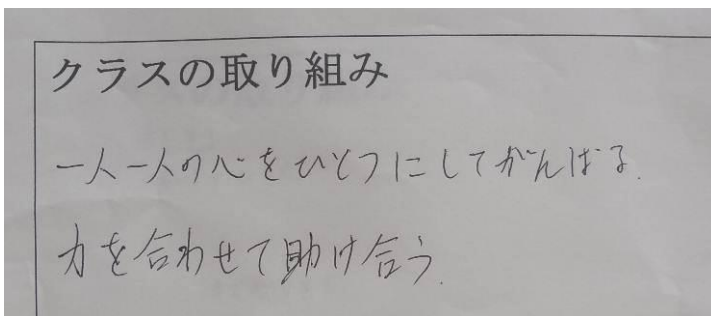 クラスの取り組み
一人一人の心をひとつにしてがんばる.
力を合わせて助け合う.